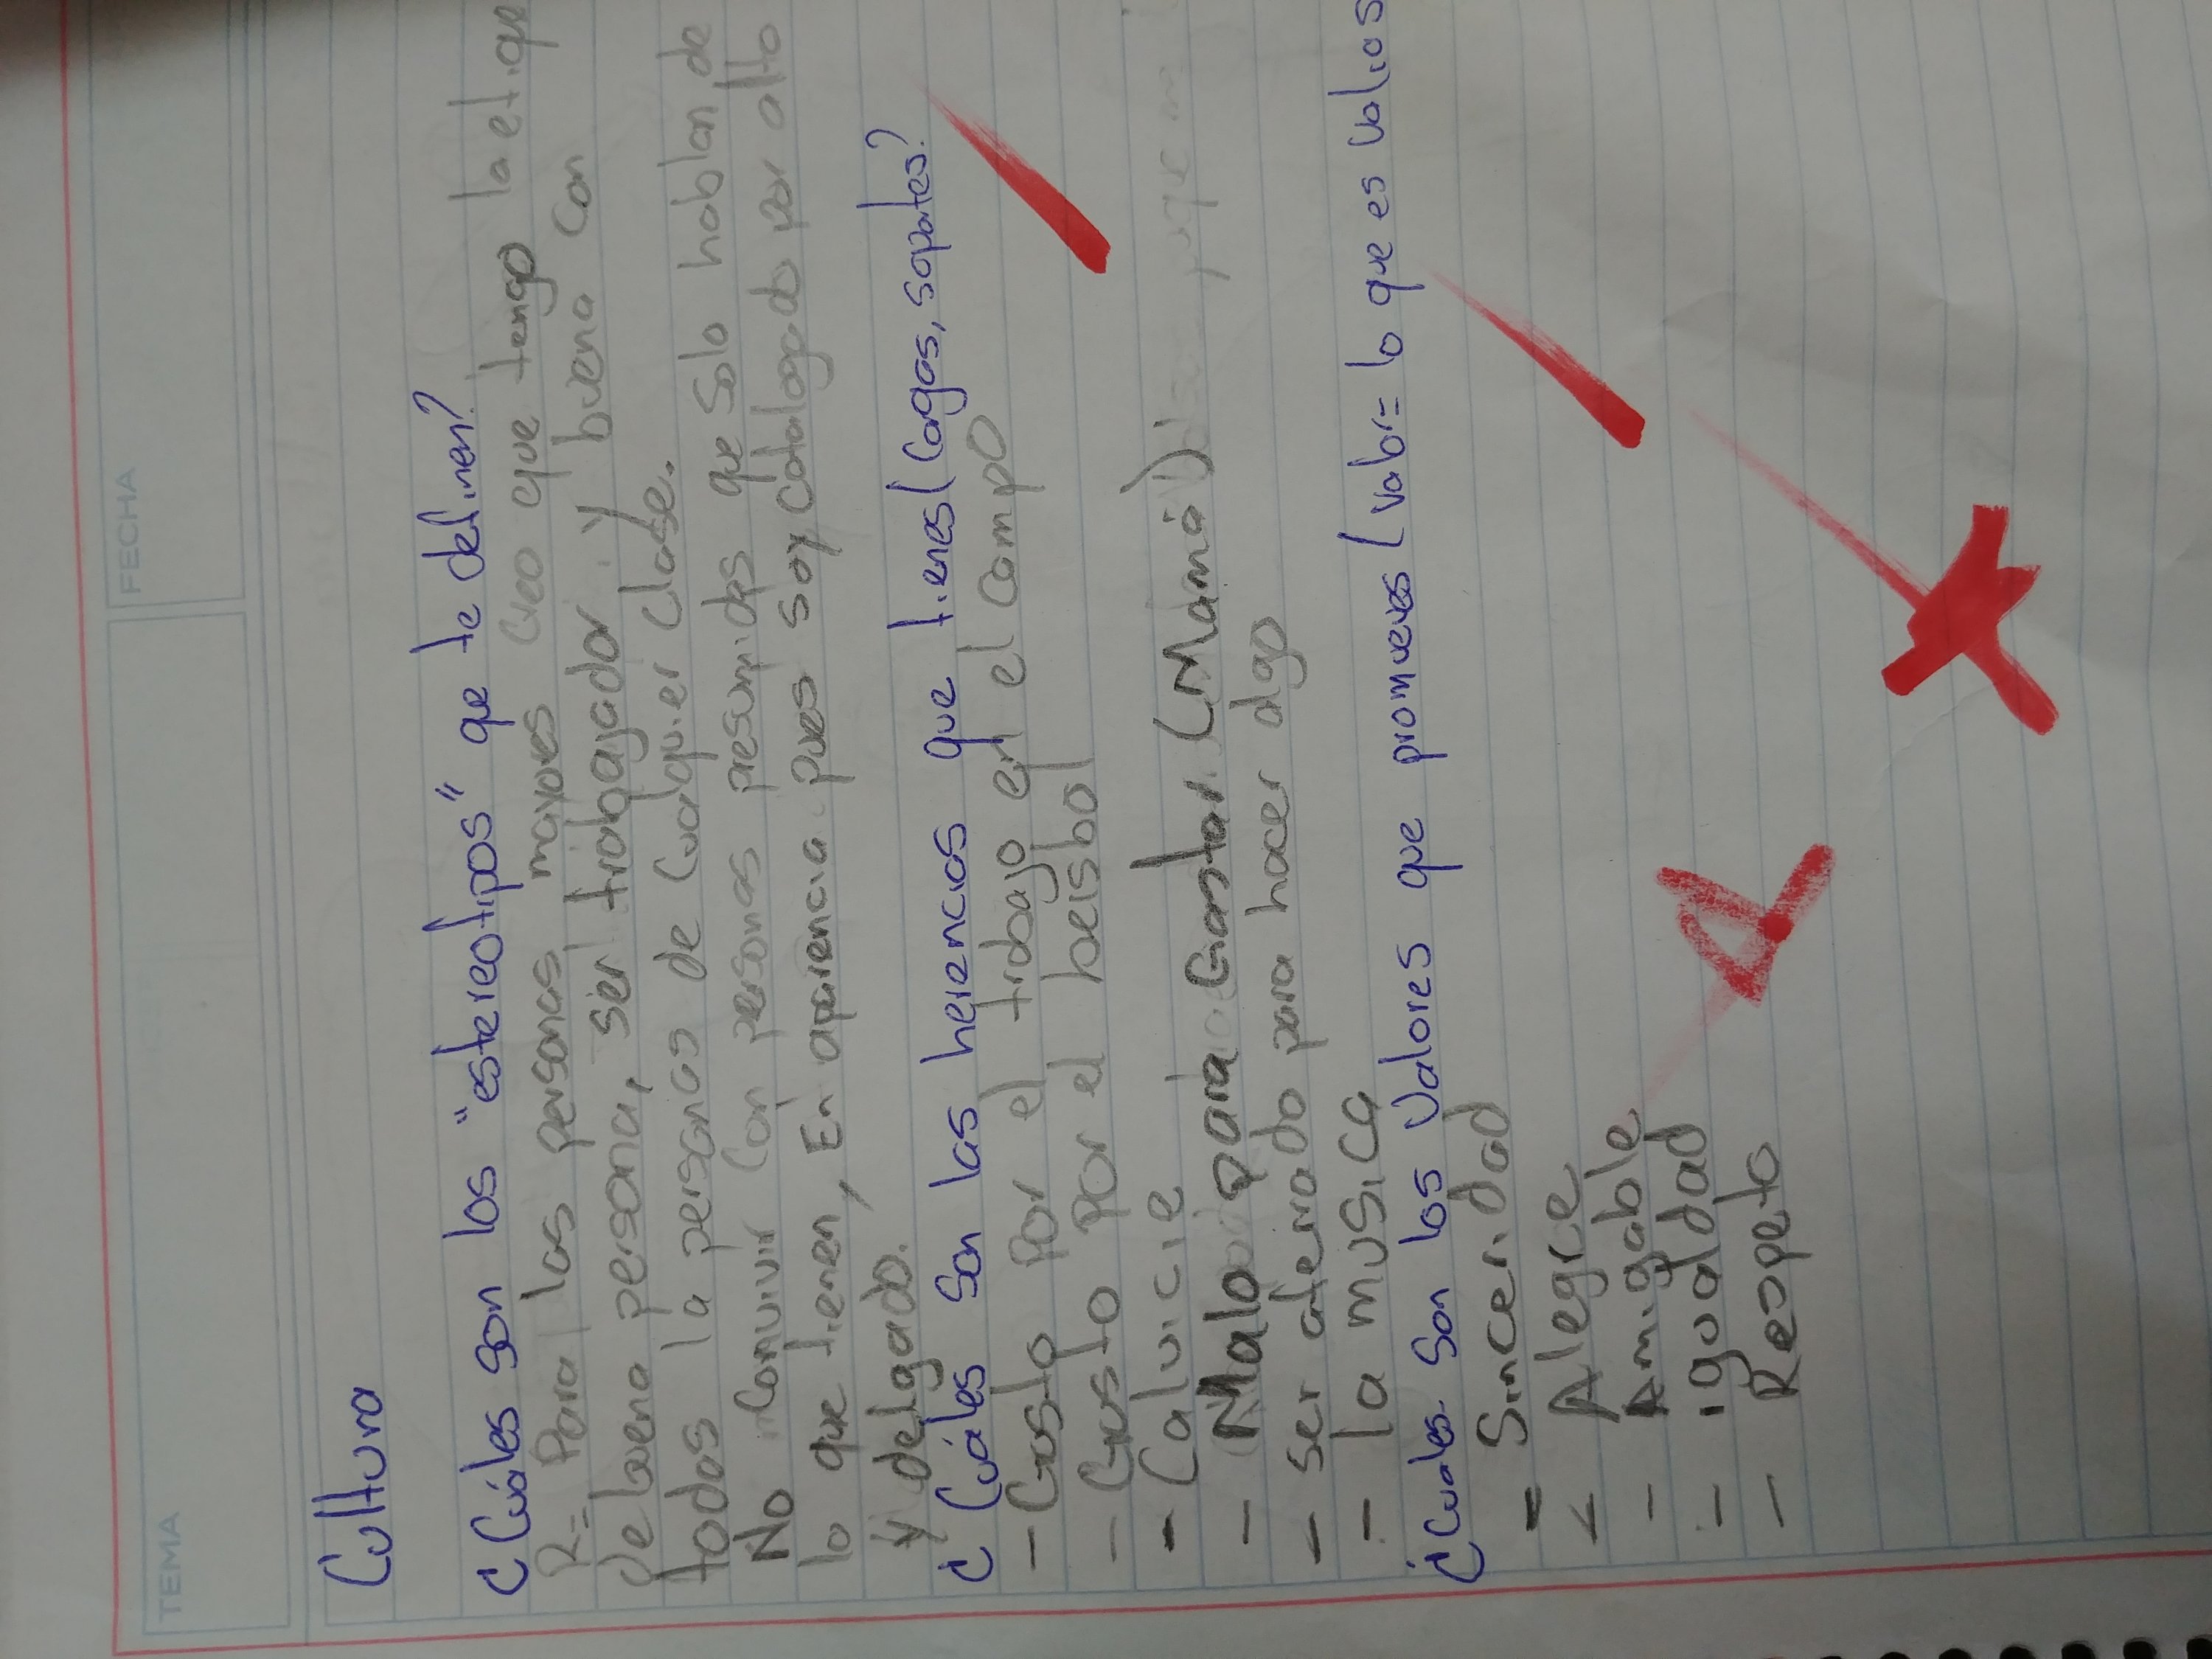 TEMA
FECHA
Cultura
¿Cuáles son los "estereotipos" que te definen?
R= Para las personas mayores creo que tengo la etique
de buena persona, ser trabajador y buena con
todas la personas de cualquier clase.
No convivir con personas presumidas que solo hablan de
lo que tienen, En apariencia pues soy catalogado por alto
y delgado.
¿Cuáles son las herencias que tienes (Cargas, soportes?
- Gusto por el trabajo en el campo
- Gusto por el beisbol
- Calvicie
- Malo para Gastar (Mamá)
- ser aferrado para hacer algo
- la musica
¿Cuales son los valores que promueves (valor= lo que es valios
- Sinceridad
- Alegre
- Amigable
- igualdad
- Respeto